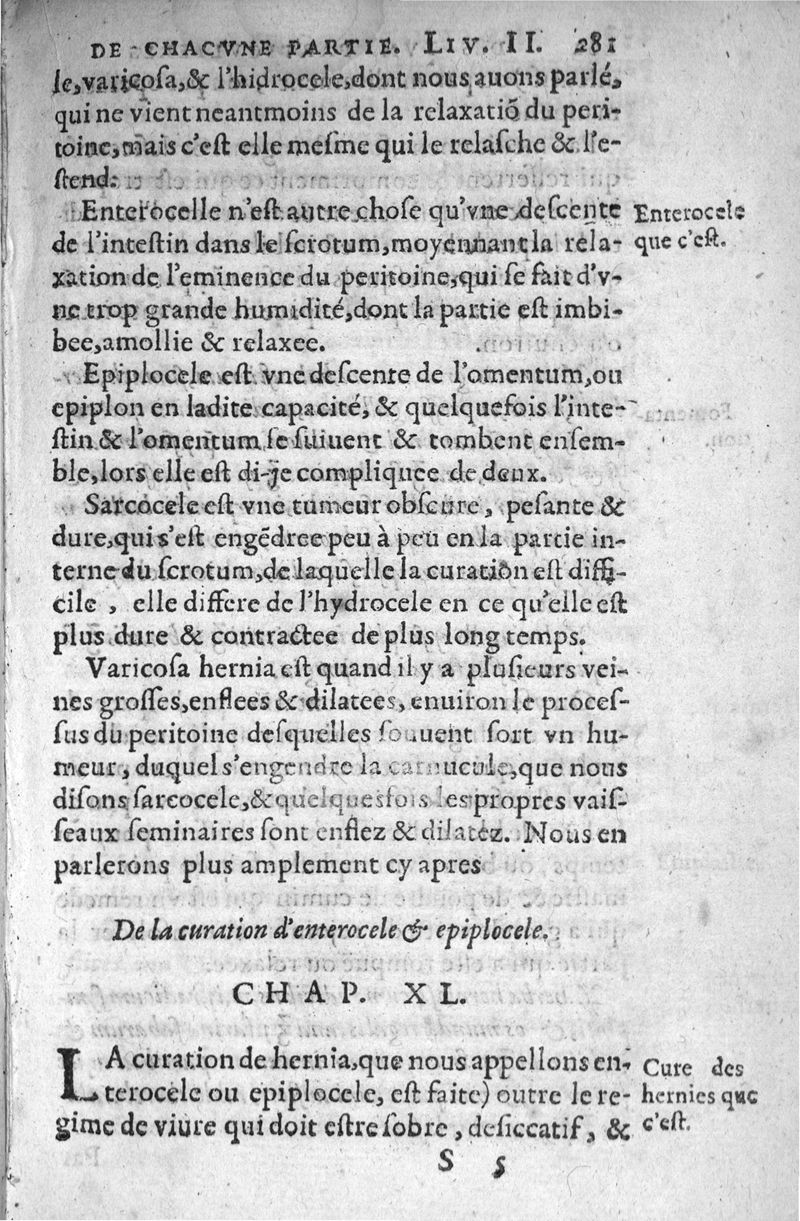 DE CHACVNE PARTIE. LIV. II. 281
le, varicoſa, & l'hidrocele, dont nous auons parlé,
qui ne vient neantmoins de la relaxatiõ du peri-
toine, mais c'eſt elle meſme qui le relaſche & l'e-
ſtend.
Enterocelle n'eſt autre choſe qu'vne deſcente
de l'inteſtin dans le ſcrotum, moyennant la rela-
xation de l'eminence du peritoine, qui ſe fait d'v-
ne trop grande humidité, dont la partie eſt imbi-
bee, amollie & relaxee.
Enterocele
que c'eſt.
Epiplocele eſt vne deſcente de l'omentum, ou
epiplon en ladite capacité, & quelquefois l'inte-
ſtin & l'omentum ſe ſuiuent & tombent enſem-
ble, lors elle eſt di-je compliquee de deux.
Sarcocele eſt vne tumeur obſcure, peſante &
dure, qui s'eſt engẽdree peu à peu en la partie in-
terne du ſcrotum, de laquelle la curation eſt diffi-
cile, elle differe de l'hydrocele en ce qu'elle eſt
plus dure & contractee de plus long temps.
Varicoſa hernia eſt quand il y a pluſieurs vei-
nes groſſes, enflees & dilatees, enuiron le proceſ-
ſus du peritoine deſquelles ſouuent ſort vn hu-
meur, duquel s'engendre la carnucule, que nous
diſons ſarcocele, & quelquesfois les propres vaiſ-
ſeaux ſeminaires ſont enflez & dilatez. Nous en
parlerons plus amplement cy apres
De la curation d'enterocele & epiplocele.
CHAP. XL.
LA curation de hernia, que nous appellons en-
terocele ou epiplocele, eſt faite) outre le re-
gime de viure qui doit eſtre ſobre, deſiccatif, &
Cure des
hernies que
c'eſt.
S 5